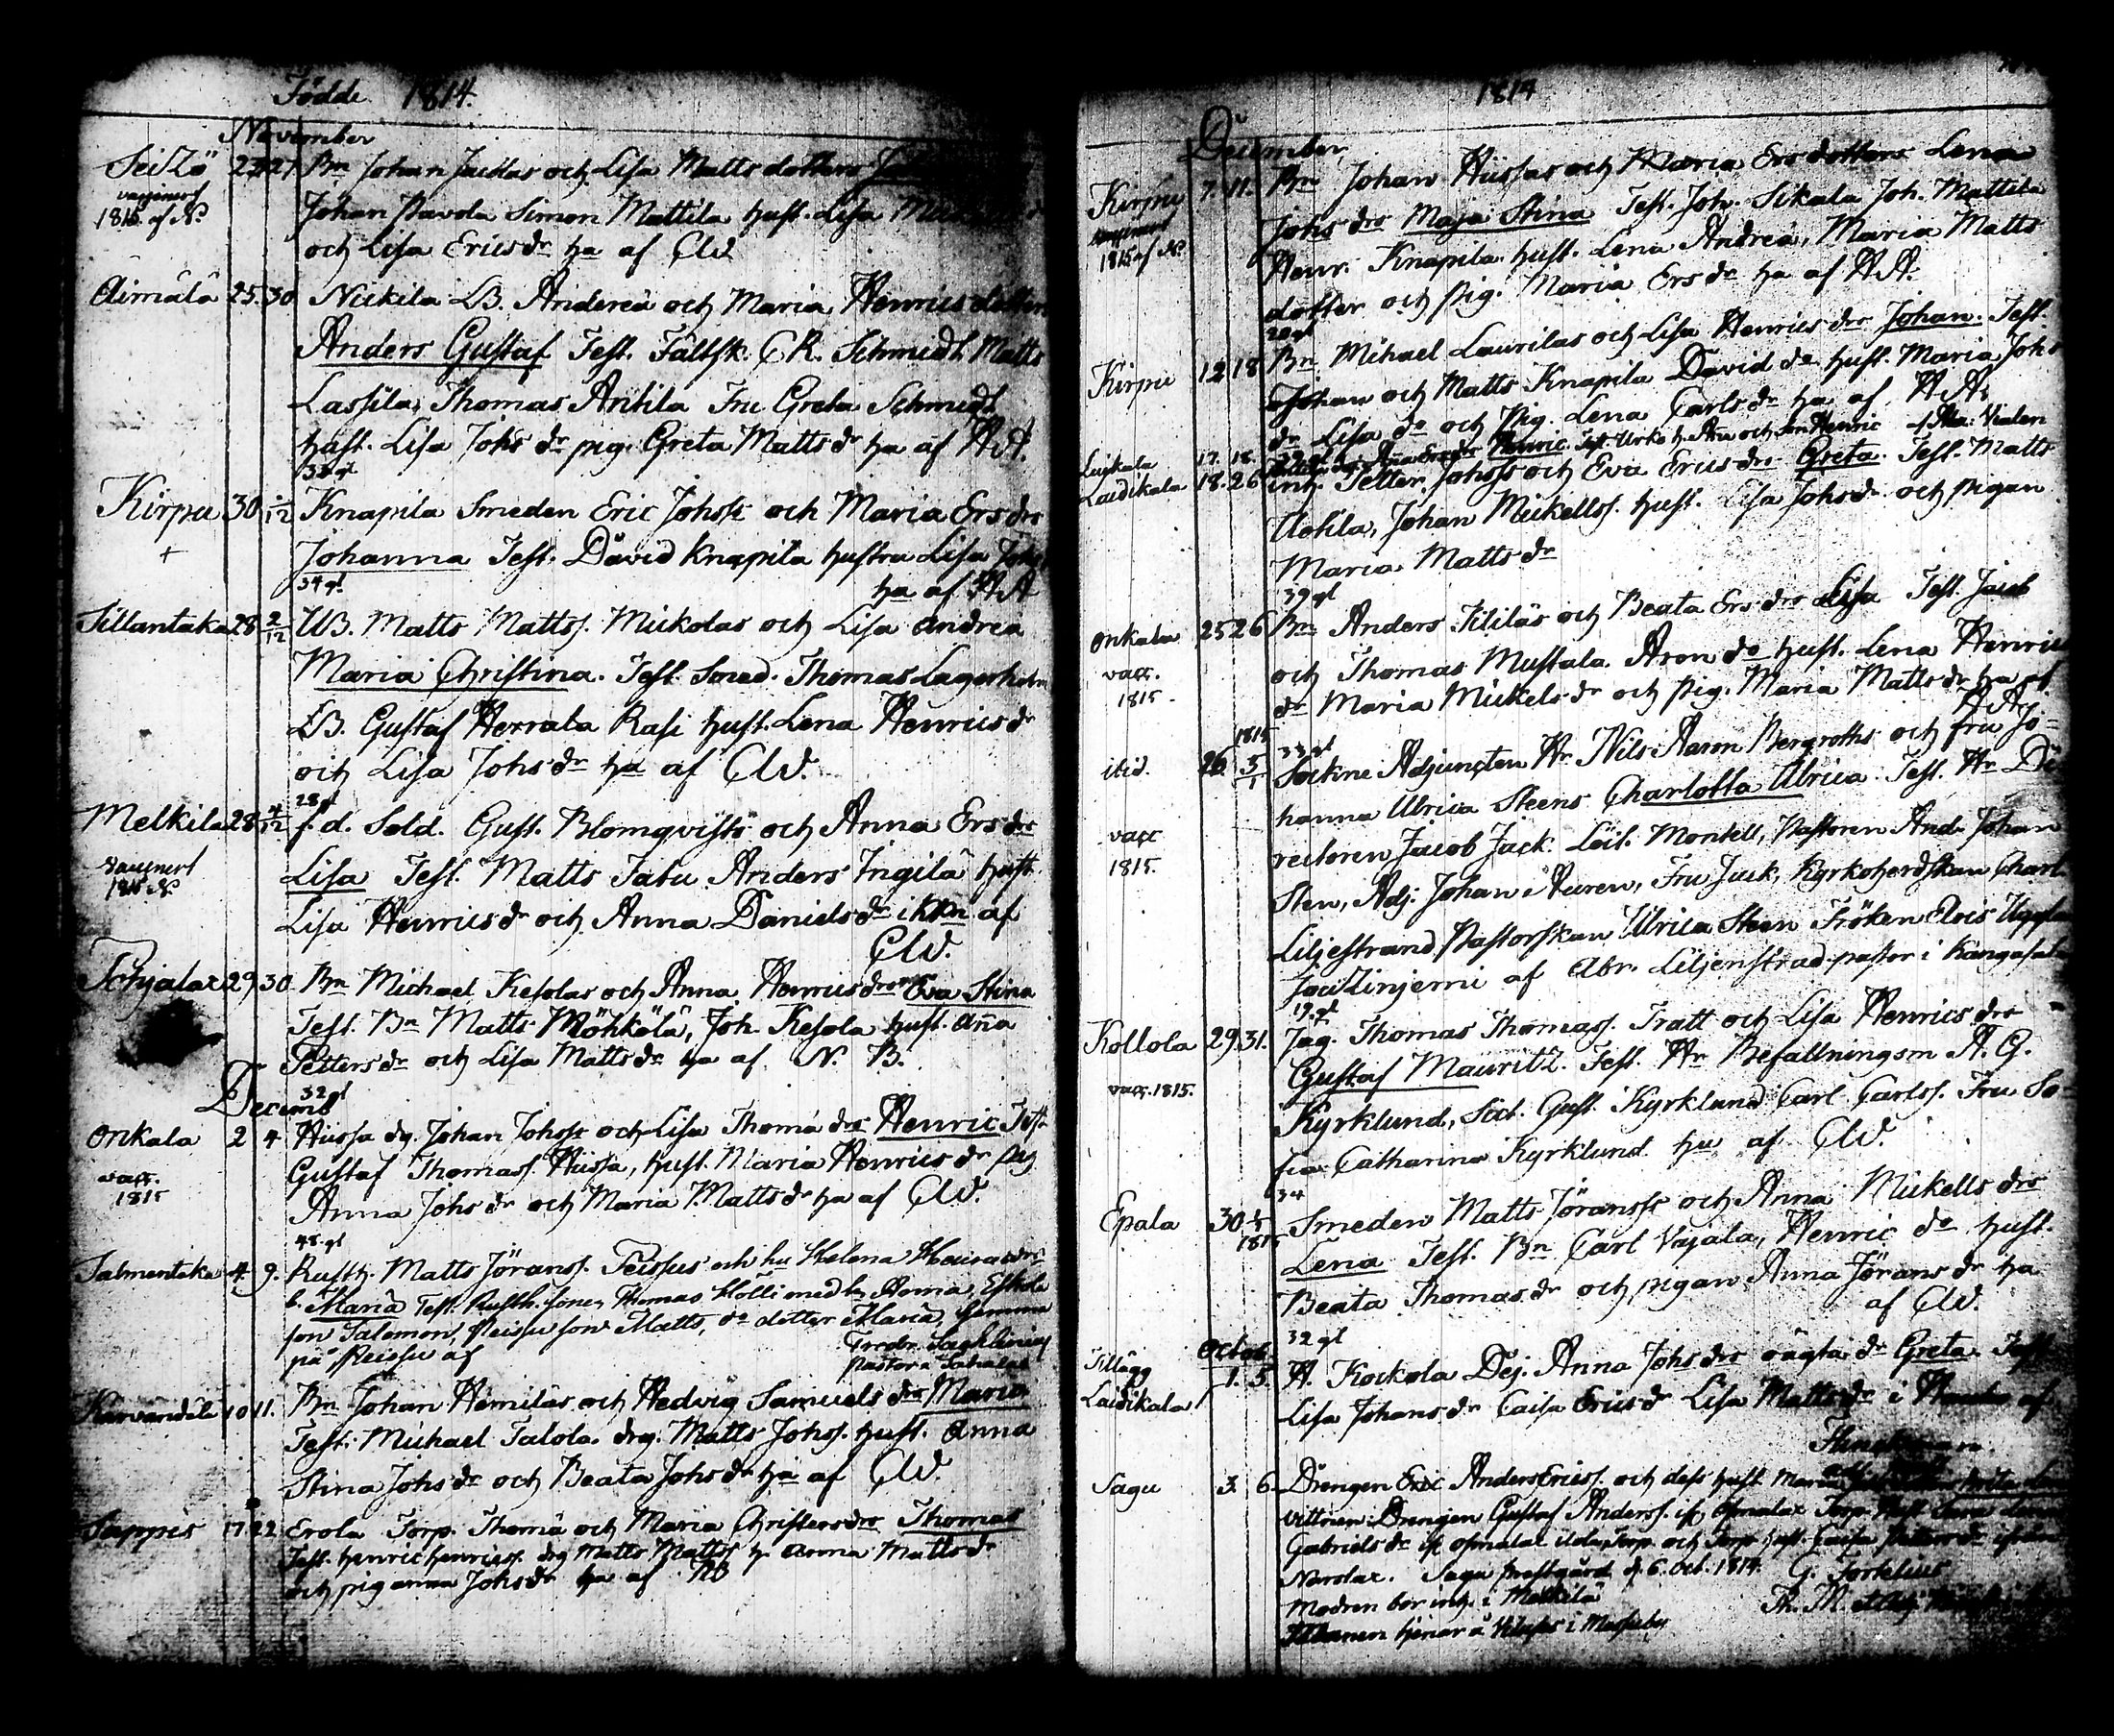 Födde 1814.
November
Seitzö 23 27 Bn Johan Juttas och Lisa Mattsdotters
vaccinerf
1815 af N.
Johan Pavola Simon Mattila hust. Lisa
och Lisa Ericsdr ha af CW
Äimälä 25. 30 Nickila LB. Andereä och Maria Henricsdotters
Anders Gustaf Test. Fältsk. C R. Schmidt Matts
Lassila, Thomas Antila Fru Greta Schmidt
hust. Lisa Johsdr pig. Greta Mattsdr ha af AA.
33 gl
Kirpu 30 1/12 Knapila Smeden Eric Johss och Maria Ersdrs
+
Johanna Test. David Knapila hustru Lisa Johs
34 gl ha af AA
Sillantaka 28 2/12 UB. Matts Mattss. Mickolas och Lisa Andrea
Maria Christina. Test. Smed. Thomas Lagerholm
LB. Gustaf Herrala Rasi hust. Lena Henricsdr
och Lisa Johsdr ha af CW.
28 gl
Melkila 28 4/12 f. d. Sold. Gust. Blomqvists och Anna Ersdrs
vaccinerf
Lisa Test. Matts Tatu Anders Ingilä hust.
Lisa Henricsdr och Anna Danielsdr i Kkn af
CW.
29. 30. Bn Michael Kesolas och Anna Henricsdrs Eva Stina
Test. Bn Matts Möhkölä, Joh. Kesola hust. Aña
Pettersdr och Lisa Mattsdr ha af N. B.
32 gl
Decemb
Onkala 2 4 Hiissa dg. Johan Johss och Lisa Thomä drs Henric Test.
vacc.
1815
Gustaf Thomass. Hiissa, hust. Maria Henricsdr pig
Anna Johsdr och Maria Mattsdr ha af CW.
48. gl
Salmentaka 4. 9. Rusth. Matts Jöranss. Peissus och hu Helena
b. Maria Test. Rusth. sonen Thomas Hölli med h. Anna, Eskola
son Salomon, Peissu son Matts, do dotter Maria, samma
på Peissu af
Kärvändilä 10 11. Bn Johan Hemiläs och Hedvig Samuelsdrs Maria
Test. Michael Talola. drg. Matts Johss. hust. Anna
Stina Johsdr och Beata Johsdr ha af CW.
Sappis 17 22 Erola Torp. Thomä och Maria Christersdrs Thomas
Test. Henric Henricss. drg Matts Mattss h. Anna Mattsdr
och pig Anna Johsdr ha af NB
1814
December,
Kirpu 7. 11. Bn Johan Hiissas och Maria Ersdotters Lena
1815 af N.
Johs drs Maja Stina Test. Joh. Sikala Joh. Mattila
Henr. Knapila hust. Lena Andreä, Maria Matts
dotter och pig. Maria Ersdr ha af AA.
28 gl
Kirpu 12 18 Bn Mihael Laurilas och Lisa Henricsdrs Johan. Test.
Johan och Matts Knapila David do hust. Maria Johs
dr Lisa do och pig. Lena Carlsdr ha af AA
17. 18.
Laidikala 18. 26 inh. Petter Johss och Eva Ericsdrs Greta. Test. Matts
Uotila, Johan Mickelss. hust. Lisa Johsdr och pigan
Maria Mattsdr
39 gl
Onkala 25 26 Bn Anders Kililäs och Beata Ersdrs Lisa Test. Jacob
vacc.
1815
och Thomas Mustala. Aron do hust. Lena Henrics
dr Maria Mickelsdr och pig. Maria Mattsdr ha af
AA.
1815
ibid. 26. 5/1 Sockne Adjuncten Hr Nils Aaron Bergroths och fru Jo-
33 gl
vacc
1815.
hanna Ulrica Steens Charlotta Ulrica. Test. Hr Di-
rectoren Jacob Jack. Löit. Montell, Pastoren And. Johan
Sten, Adj. Johan Auren, Fru Juck, Kyrkoherdskan Charl.
Liljestrand, Pastorskan Ulrica Steen Fröken Lovis Uggla
Linjerni af Abr. Liljenstrad pastor i Kangasala
19. gl
Kollola 29. 31. Jag. Thomas Thomass. Tratt och Lisa Henricsdrs
vacc. 1815.
Gustaf Mauritz. Test. Hr Befallningsm A. G.
Kyrklund, Stud. Gust. Kyrklund Carl Carlss. Fru So-
fia Catharina Kyrklund ha af CW.
34
Epala 30 1/1 Smeden Matts Jöranss och Anna Mickellsdrs
1815
Lena Test. Bn Carl Vajala, Henric do hust.
Beata Thomasdr och pigan Anna Jöransdr ha
af CW.
32 gl
Tillägg Octob.
Laidikala 1. 5. A. Kockola Dej. Anna Johsdrs oägta dr Greta. Test.
Lisa Johansdr Caisa Ericsdr Lisa Mattsdr i af
Sagu 3. 6. Drengen Anders Ericss. och dess hust. Maria
vittnen Drengen Gustaf Anderss.
Gabrielsdr
Sagu prestgård d. 6. Oct. 1814. G. Forselius
Modren bor inh. i Melkilä